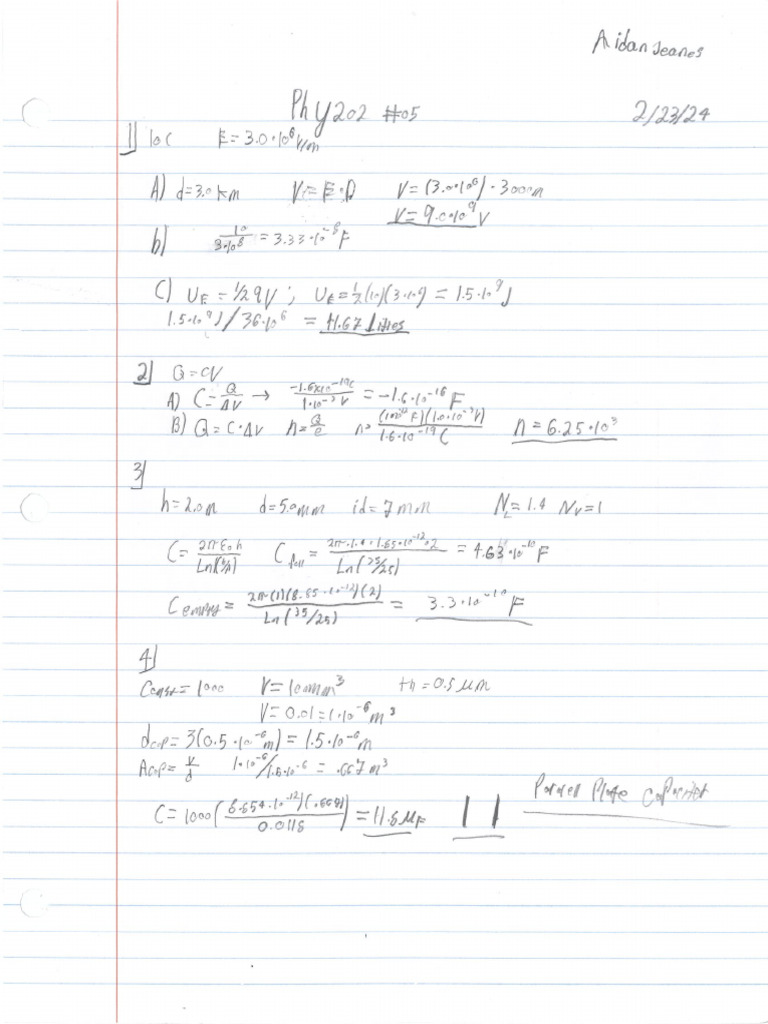 Aidan Jeanos
Phy202 #05 2/23/24
1) 10C E = 3.0·10⁶ V/m
A) d=3.0km V=E·D V=(3.0·10⁶)·3000m
V=9.0·10⁹ V
b) 10/3·10⁸ = 3.33·10⁻⁸ F
C) U_E = 1/2 qV ; U_E = 1/2(10)(3·10⁸) = 1.5·10⁹ J
1.5·10⁹ J / 36·10⁶ = 41.67 Litres
2) Q=CV
A) C = Q/ΔV → -1.6x10⁻¹⁹C / 1·10⁻³ V = -1.6·10⁻¹⁶ F
B) Q = C·ΔV n=Q/e n= (1.0·10⁻³V) / 1.6·10⁻¹⁹ C n = 6.25·10³
3)
h=2.0m d=5.0mm id=7mm N_L=1.4 N_V=1
C = 2πε₀h / Ln(b/a) C_full = / Ln(35/25) = 4.63·10⁻¹⁰ F
C empty = 2π(1)(8.85·10⁻¹²)(2) / Ln(35/25) = 3.3·10⁻¹⁰ F
4)
Const = 1000 V=10mm³ th=0.5μm
V= 0.01=1·10⁻⁶ m³
d_cap = 3(0.5·10⁻⁶m) = 1.5·10⁻⁶m
A_cap = V/d 1·10⁻⁶/1.5·10⁻⁶ = .667m³
C = 1000( (8.854·10⁻¹²)(.6667) / 0.0118 ) = 11.8μF || Parallel Plate Capacitor